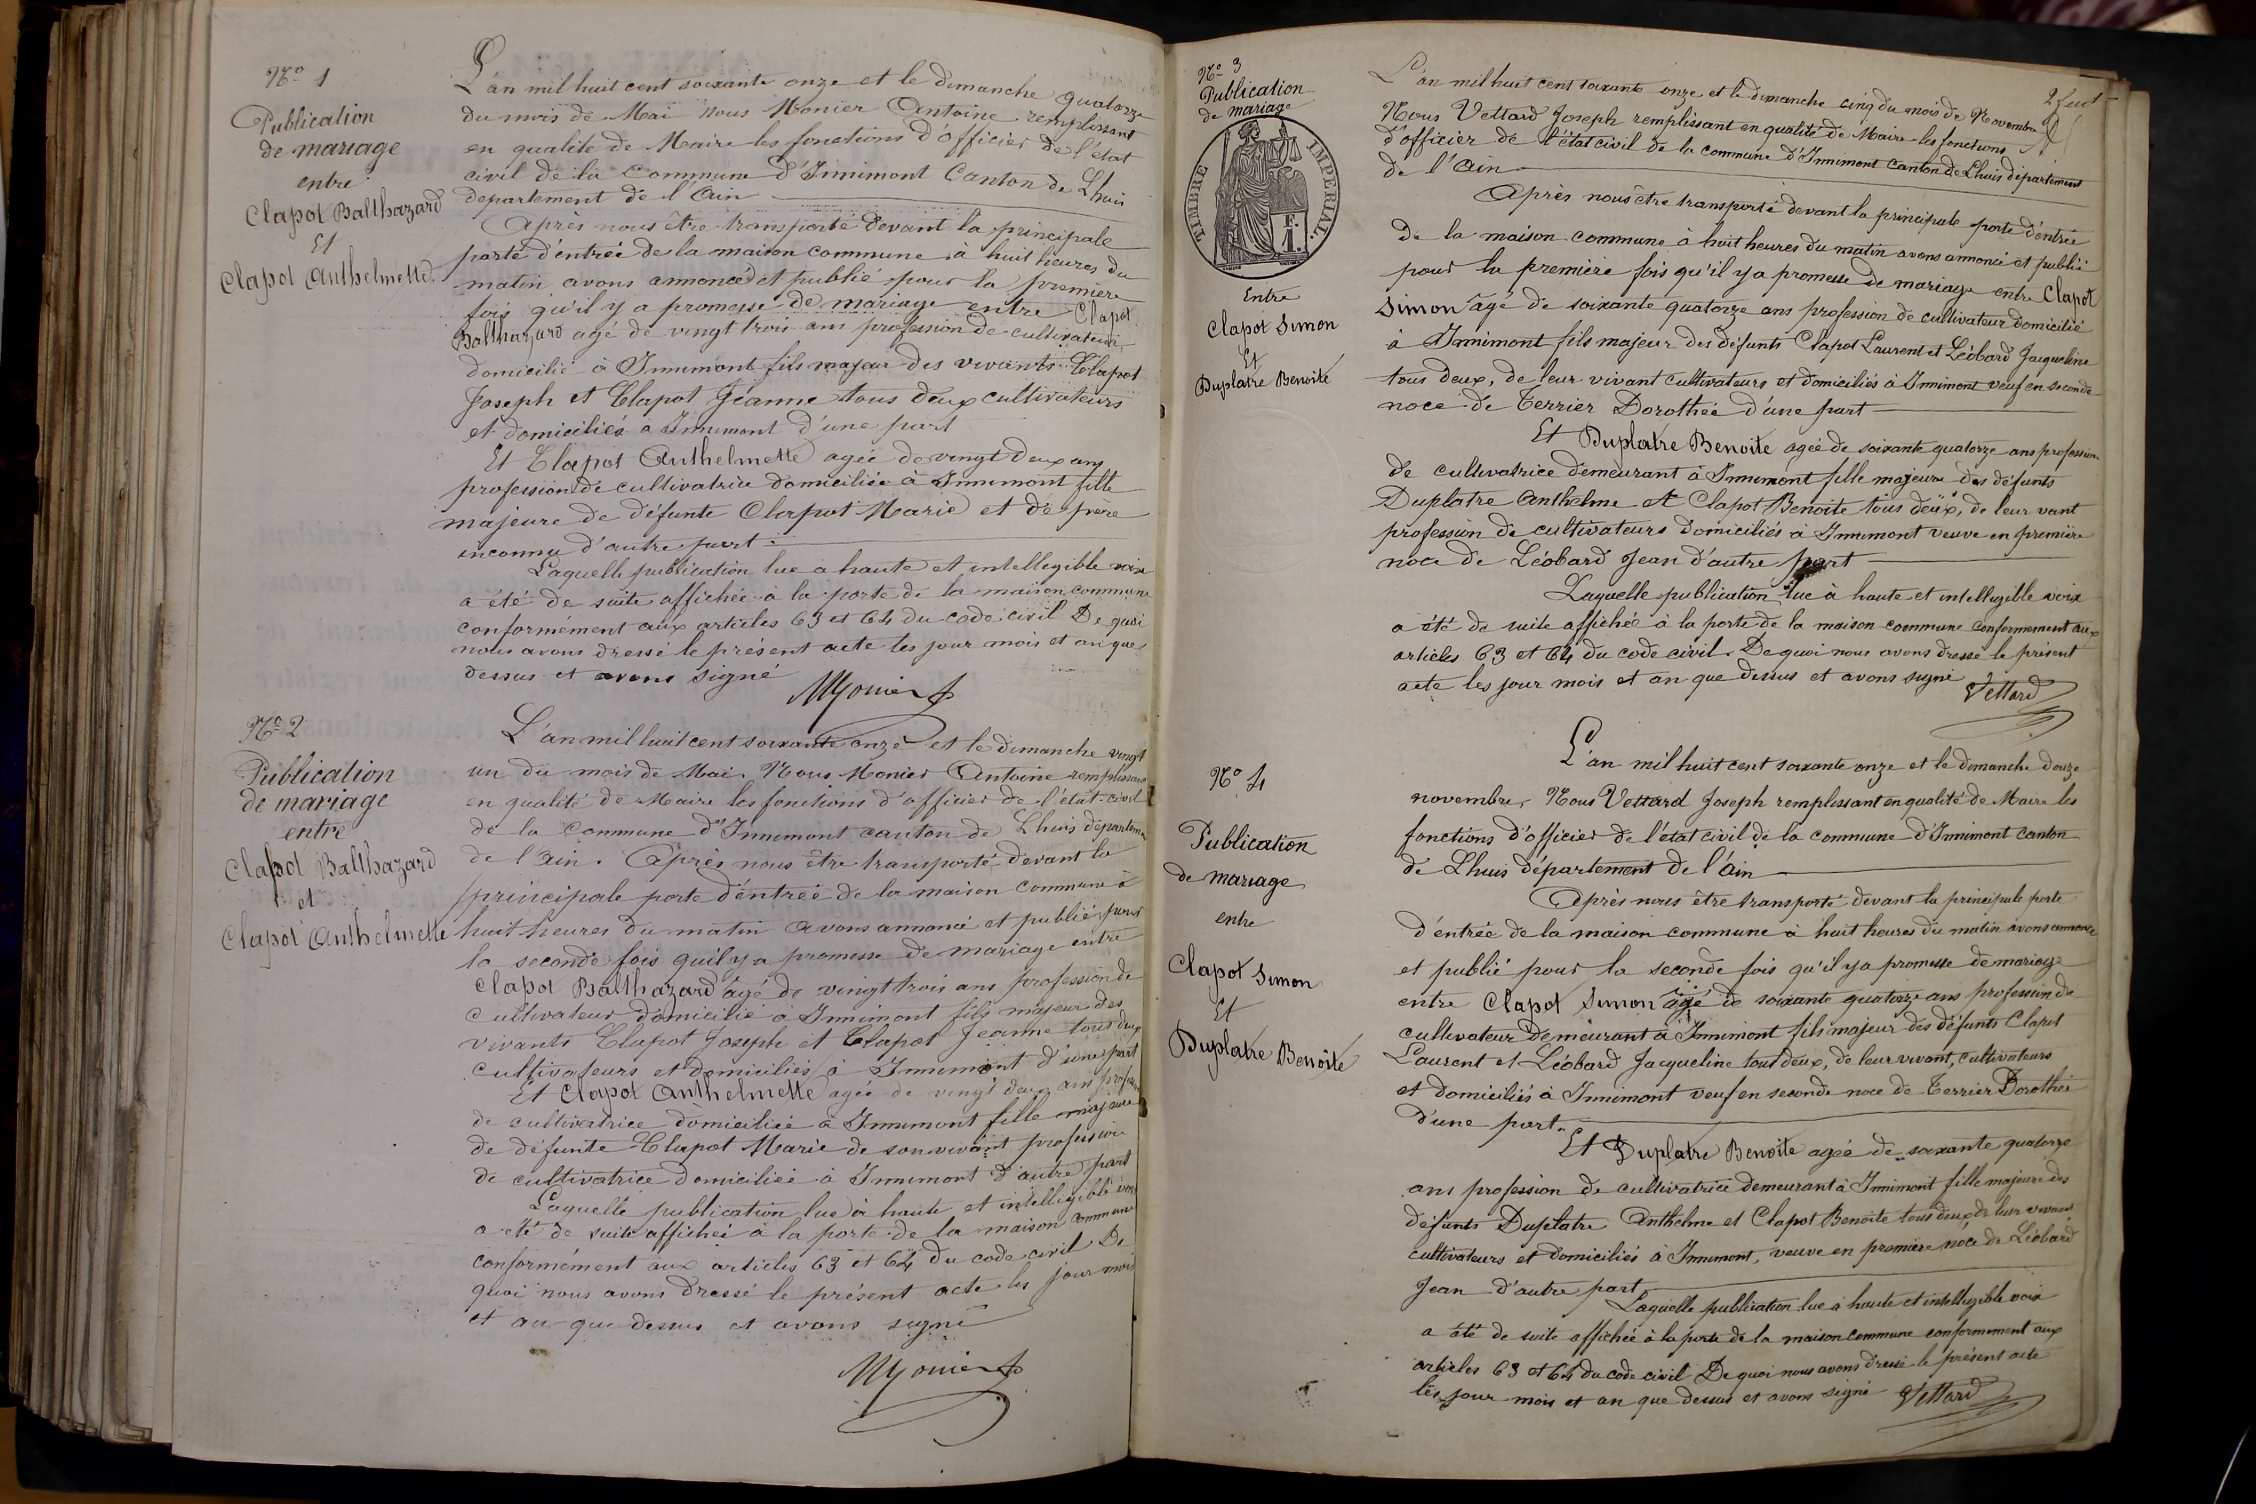 No 1
Publication
de mariage
entre
Clapot Balthazard
Et
Clapot Anthelmette
L'an mil huit cent soixante onze et le dimanche quatorze
du mois de Mai nous Monier Antoine remplissant
en qualité de Maire les fonctions d'officier de l'état
civil de la Commune d'Innimont Canton de Lhuis
departement de l'Ain
Après nous être transporté devant la principale
porte d'éntrée de la maison commune à huit heures du
matin avons annoncé et publié pour la première
fois qu'il y a promesse de mariage entre Clapot
Balthazard agé de vingt trois ans profession de cultivateur
domicilié à Innimont fils majeur des vivants Clapot
Joseph et Clapot Jeanne tous deux cultivateurs
et domiciliés a Innimont d'une part
Et Clapot Anthelmette agée de vingt deux ans
profession de cultivatrice domiciliée à Innimont fille
majeure de défunte Clapot Marie et de père
inconnu d'autre part
Laquelle publication lue a haute et intellegible voix
a été de suite affichée a la porte de la maison commune
conformément aux articles 63 et 64 du code civil De quoi
nous avons dressé le présent acte les jour mois et an que
dessus et avons signé
Monier
No 2
Publication
de mariage
entre
Clapot Balthazard
et
Clapot Anthelmette
L'an mil huit cent soixante onze et le dimanche vingt
un du mois de Mai. Nous Monier Antoine remplissant
en qualité de Maire les fonctions d'officier de l'état-civil
de la Commune d'Innimont canton de Lhuis departement
de l'Ain. Après nous être transporté devant la
principale porte d'éntrée de la maison commune à
huit heures du matin avons annoncé et publié pour
la seconde fois qu'il y a promesse de mariage entre
Clapot Balthazard agé de vingt trois ans profession de
cultivateur domicilié à Innimont fils majeur des
vivants Clapot Joseph et Clapot Jeanne tous deux
cultivateurs et domiciliés à Innimont d'une part
Et Clapot Anthelmette agée de vingt deux ans profession
de cultivatrice domiciliée à Innimont fille majeure
de défunte Clapot Marie de son vivant profession
de cultivatrice domiciliée à Innimont d'autre part
Laquelle publication lue à haute et intelligible voix
a été de suite affichée à la porte de la maison commune
conformément aux articles 63 et 64 du code civil De
quoi nous avons dressé le présent acte les jour mois
et an que dessus et avons signé
Monier
No 3
Publication
de mariage
TIMBRE IMPERIAL.
1 F.
Entre
Clapot Simon
Et
Duplatre Benoite
L'an mil huit cent soixante onze et le dimanche cinq du mois de Novembre
Nous Vettard Joseph remplissant en qualité de Maire les fonctions
d'officier de l'état civil de la commune d'Innimont canton de Lhuis département
de l'Ain
Après nous être transporté devant la principale porte d'éntrée
de la maison commune à huit heures du matin avons annoncé et publié
pour la première fois qu'il y a promesse de mariage entre Clapot
Simon âgé de soixante quatorze ans profession de cultivateur domicilié
à Innimont fils majeur des défunts Clapot Laurent et Léobard Jacqueline
tous deux, de leur vivant cultivateurs et domiciliés à Innimont veuf en seconde
noce de Terrier Dorothée d'une part
Et Duplatre Benoite agée de soixante quatorze ans profession
de cultivatrice demeurant à Innimont fille majeure des défunts
Duplatre Anthelme et Clapot Benoite tous deux, de leur vant
profession de cultivateurs domiciliés à Innimont veuve en première
noce de Léobard Jean d'autre part
Laquelle publication lue à haute et intelligible voix
a été de suite affichée à la porte de la maison commune conformement aux
articles 63 et 64 du code civil. De quoi nous avons dressé le présent
acte les jour mois et an que dessus et avons signé Vettard
No 4
Publication
de mariage
entre
Clapot Simon
Et
Duplatre Benoite
L'an mil huit cent soixante onze et le dimanche douze
novembre, Nous Vettard Joseph remplissant en qualité de Maire les
fonctions d'officier de l'état civil de la commune d'Innimont canton
de Lhuis département de l'Ain
Après nous être transporté devant la principale porte
d'éntrée de la maison commune à huit heures du matin avons annoncé
et publié pour la seconde fois qu'il y a promesse de mariage
entre Clapot Simon âgé de soixante quatorze ans profession de
cultivateur demeurant à Innimont fils majeur des défunts Clapot
Laurent et Léobard Jacqueline tous deux, de leur vivant, cultivateurs
et domiciliés à Innimont veuf en seconde noce de Terrier Dorothée
d'une part.
Et Duplatre Benoite agée de soixante quatorze
ans profession de cultivatrice demeurant à Innimont fille majeure des
défunts Duplatre Anthelme et Clapot Benoite tous deux de leur vivant
cultivateurs et domiciliés à Innimont, veuve en première noce de Léobard
Jean d'autre part
Laquelle publication lue à haute et intelligible voix
a été de suite affichée à la porte de la maison commune conformement aux
articles 63 et 64 du code civil De quoi nous avons dressé le présent acte
les jour mois et an que dessus et avons signé Vettard